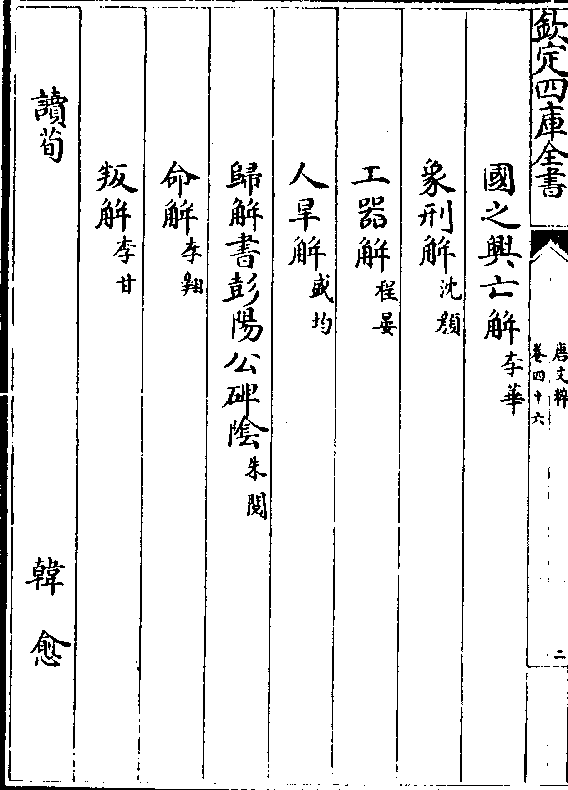 欽定四庫全書
唐文粹
卷四十六
二
國之興亡解 李華
象刑解 沈顔
工器解 程晏
人旱解 盛均
歸解書彭陽公碑陰 朱閲
命解 李翱
叛解 李甘
讀荀 韓愈